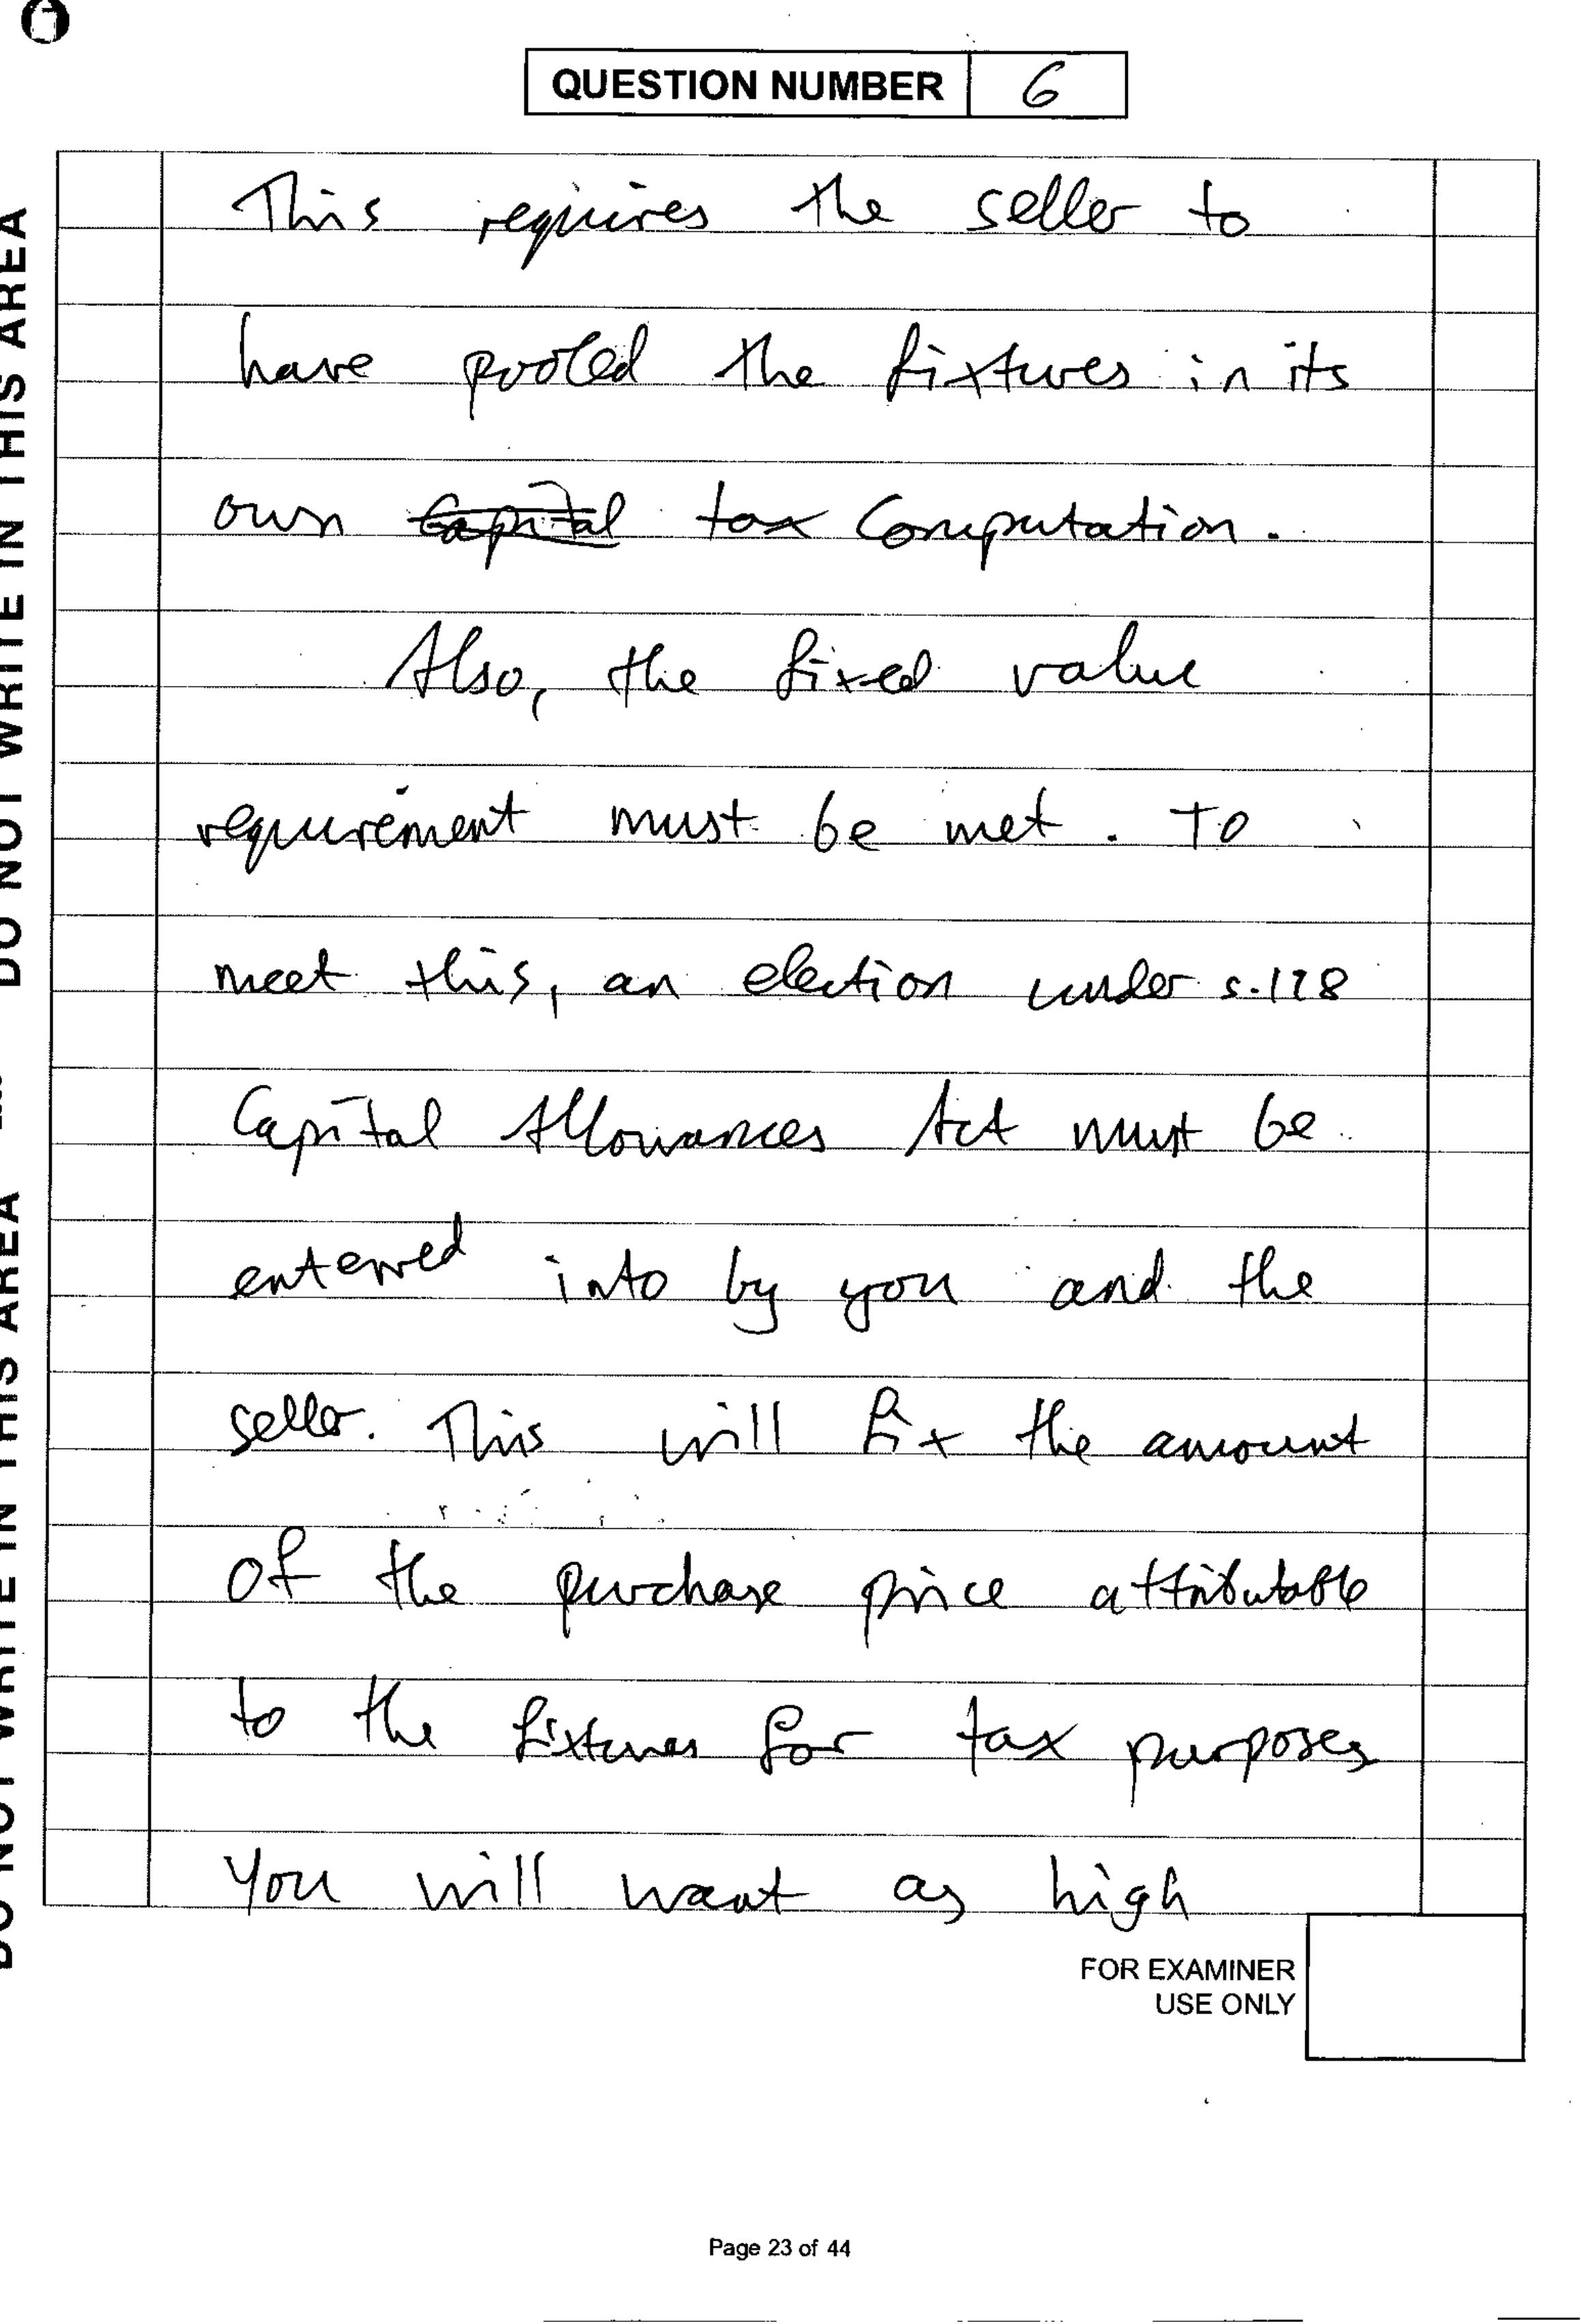 QUESTION NUMBER 6
This requires the seller to
have pooled the fixtures in its
own Capital tax Computation.
Also, the fixed value
requirement must be met. To
meet this, an election under s.198
Capital Allowances Act must be
enterred into by you and the
seller. This will fix the amount
of the purchase price attributable
to the fixtures for tax purposes
You will want as high
FOR EXAMINER
USE ONLY
Page 23 of 44
DO NOT WRITE IN THIS AREA
DO NOT WRITE IN THIS AREA